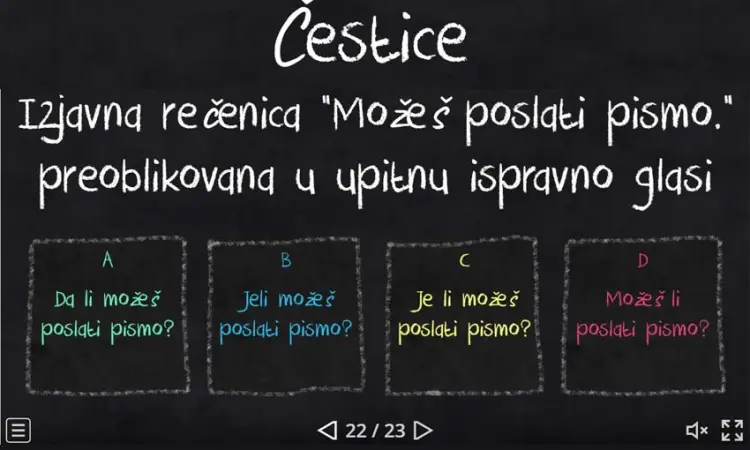 Čestice
Izjavna rečenica "Možeš poslati pismo."
preoblikovana u upitnu ispravno glasi
A
Da li možeš
poslati pismo?
B
Jeli možeš
poslati pismo?
C
Je li možeš
poslati pismo?
D
Možeš li
poslati pismo?
22 / 23